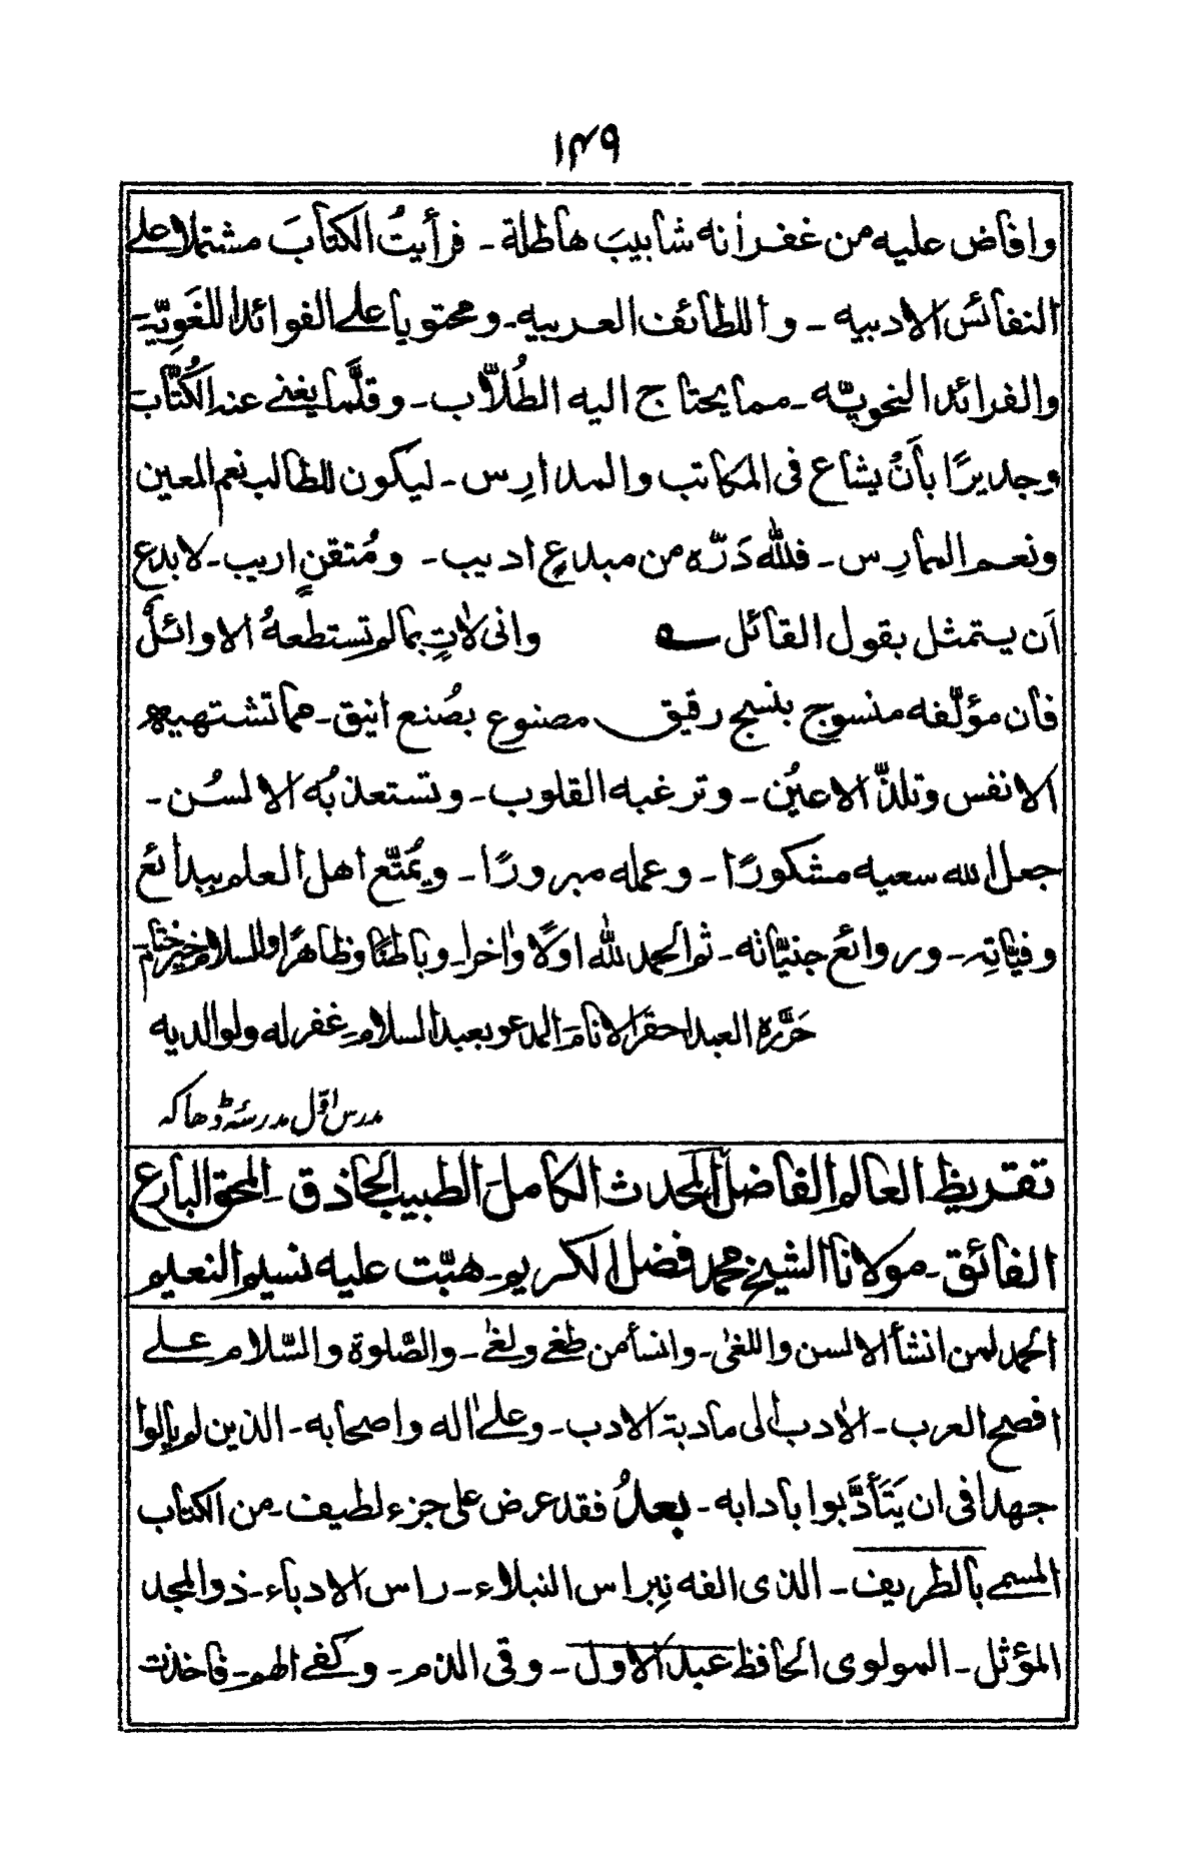 ۱۴۹
وافاض عليه من غفرانه شابيبَ هاطلة ـ فرأيتُ الكتابَ مشتملا على
النفائس الادبيه ـ واللطائف العربيه ـ ومحتويا على الفوائد اللغَوِيّة ـ
والفرائد النحويّه ـ مما يحتاج اليه الطُلاّب ـ وقلَّما يغنى عنه الكُتّاب
وجديرًا بأَنْ يشاع فى المكاتب والمدارِس ـ ليكون للطالب نعم المعين
ونعم الممارِس ـ فلله دَرّه من مبدعٍ اديب ـ ومُتقنٍ اريب ـ لابدع
اَن يتمثل بقول القائل ؎ وانى لاٰتٍ بما لم تستطعهُ الاوائلُ
فان مؤلّفه منسوج بنسج رقيق مصنوع بصُنع انيق ـ مما تشتهيه
الانفس وتلذّ الاعيُن ـ وترغبه القلوب ـ وتستعذبُه الالسُن ـ
جعل الله سعيه مشكورًا ـ وعمله مبرورًا ـ ويُمَتّع اهل العلم ببدائع
وفيّاتِه ـ وروائع جنيّاته ـ ثم الحمد لله اولًا واٰخرا ـ وباطنًا وظاهرًا وللسلام خير ختام ـ
حَرَّره العبد احقر الانام المدعو بعبد السلام غفر له ولوالديه
مدرس اوّل مدرسۂ ڈھاکہ
تقريظ العالم الفاضل المحدث الكامل الطبيب الحاذق ـ المحقق البارع
الفائق ـ مولانا الشيخ محمد فضل الكريم ـ هبّت عليه نسيم النعيم
الحمد لمن انشأ الالسن واللغٰى ـ وانسأ من طغى ولغٰى ـ والصّلوة والسّلام على
افصح العرب ـ الاٰدب الى مادبة الادب ـ وعلىٰ اله واصحابه ـ الذين لم يالوا
جهدا فى ان يَتَأَدَّبوا بادابه ـ بعدُ فقد عرض على جزء لطيف ـ من الكتاب
المسمى بالطريف ـ الذى الفه نِبراس النبلاء ـ راس الادباء ـ ذوالمجد
المؤثل ـ المولوى الحافظ عبد الاول ـ وقى الذم ـ وكفى الهم ـ فاخذت